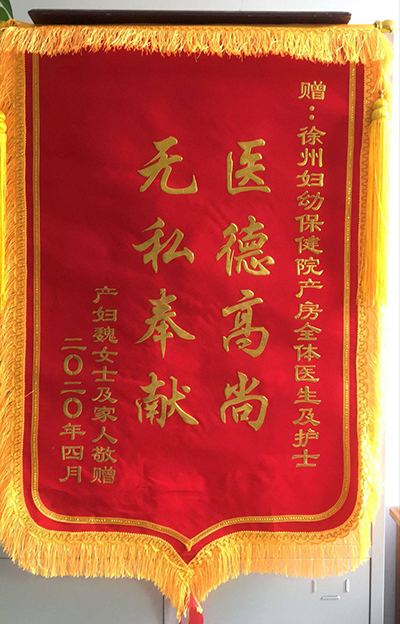 赠：徐州妇幼保健院产房全体医生及护士
医德高尚
无私奉献
产妇魏女士及家人敬赠
二〇二〇年四月